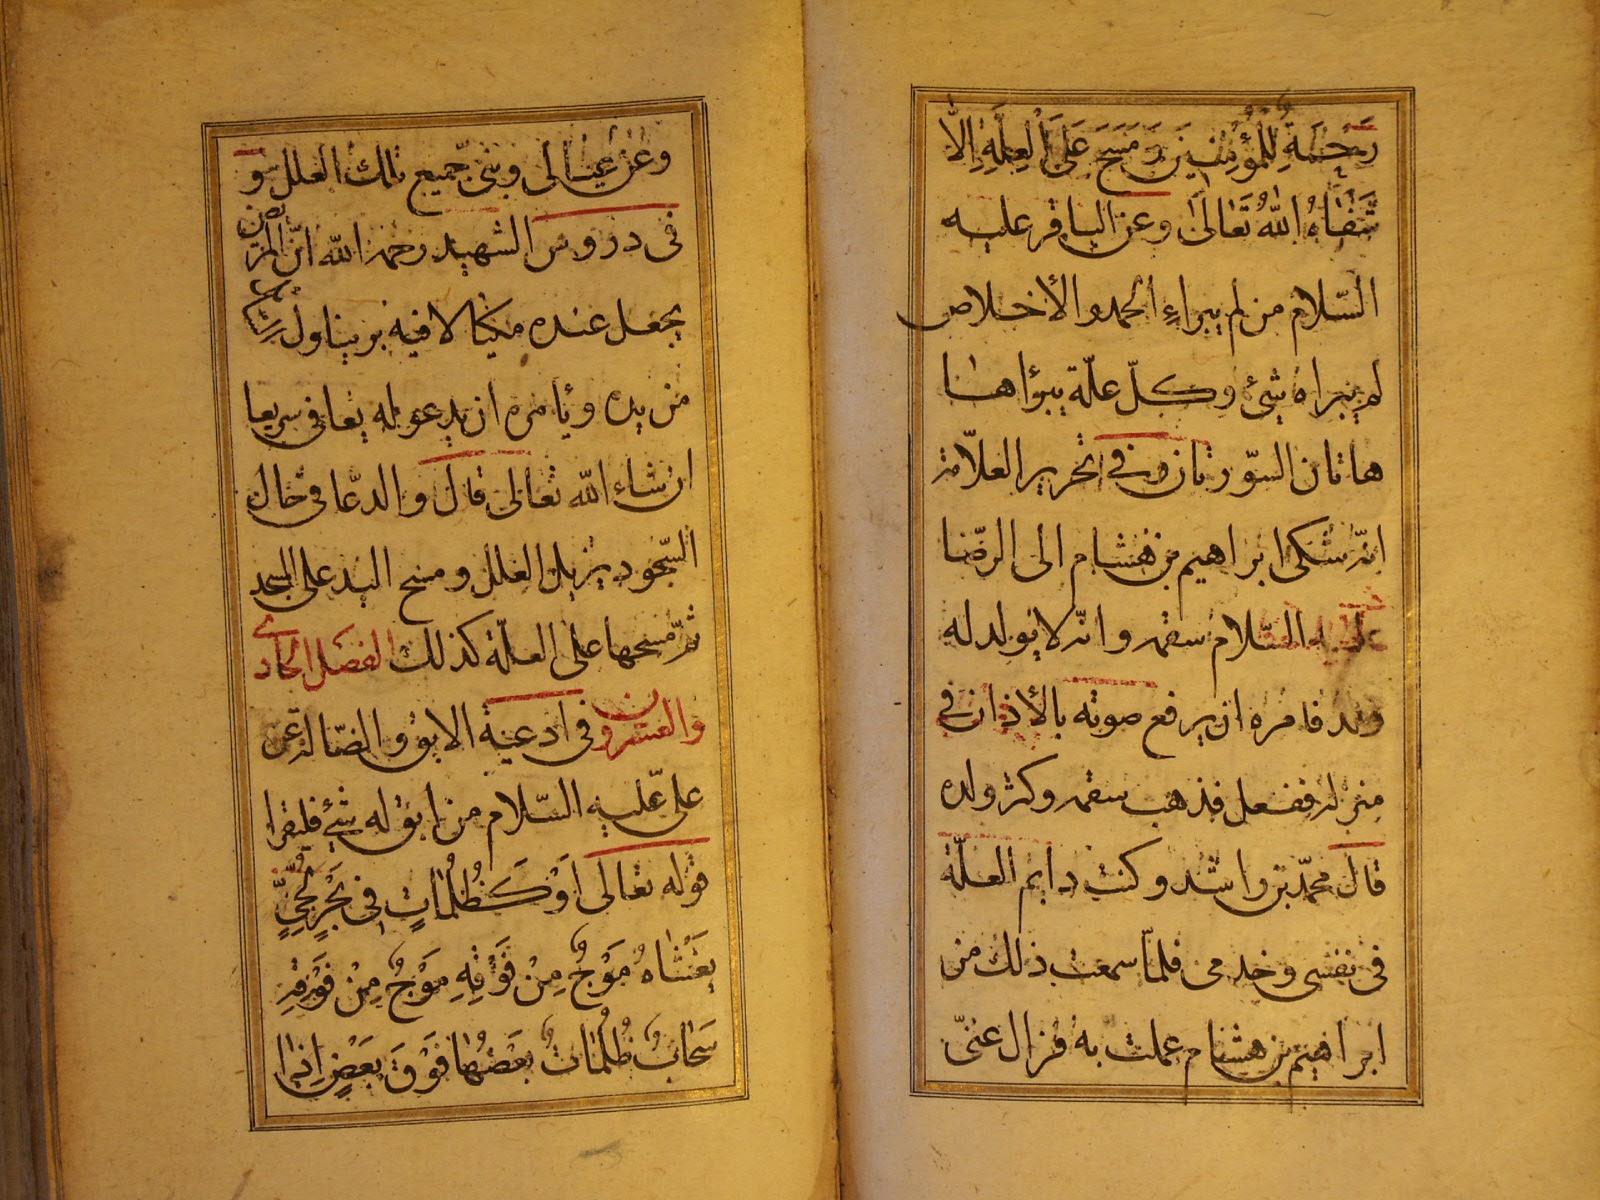 رَحْمَةٌ لِلْمُؤْمِنِينَ وَمَسَحَ عَلَى الْعِلَّةِ اِلَّا
شَفَاهُ اللهُ تَعَالَىٰ وعن الباقر عليه
السّلام من لم يبراء الحمد والأخلاص
لم يبراه شئ وكلّ علّة يبرؤاها
هاتان السّورتان وفى تحرير العلاّمة
انّه شكى ابراهيم بن هشام الى الرضا
عليه السّلام سقمه وانّه لا يولد له
ولد فامره ان يرفع صوته بالأذان فى
منزله ففعل فذهب سقمه وكثر ولده
قال محمّد بن راشد وكنت دايم العلّة
فى نفسى وخدمى فلمّا سمعت ذلك من
ابراهيم بن هشام عملت به فزال عنّى
وعن عيالى وبنىّ جميع تلك العلل و
فى دروس الشهيد رحمه الله انّ المريض
يجعل عنده مكيالا فيه بر يناول السائل
من يده ويأمره ان يدعو له يعافى سريعا
ان شاء الله تعالى قال والدعّا فى حال
السّجود يزيل العلل ومسح اليد على المسجد
ثمّ مسحها على العلّة كذلك الفصل الحادى
والعشرون فى ادعية الابق والضّالة عن
على عليه السّلام من ابق له شئ فليقرا
قوله تعالى اَوْ كَظُلُمَاتٍ فِى بَحْرٍ لُجِّيٍّ
يَغْشَاهُ مَوْجٌ مِنْ فَوْقِهِ مَوْجٌ مِنْ فَوْقِهِ
سَحَابٌ ظُلُمَاتٌ بَعْضُهَا فَوْقَ بَعْضٍ اِذَا